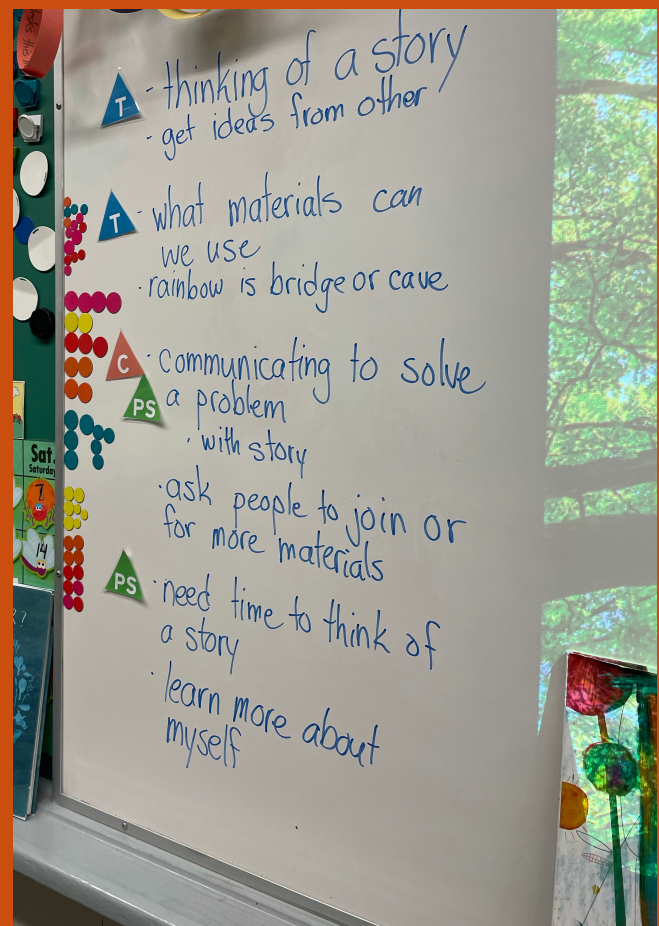 T - thinking of a story
- get ideas from other
T - what materials can
we use
· rainbow is bridge or cave
C · communicating to solve
PS a problem
· with story
· ask people to join or
for more materials
PS · need time to think of
a story
· learn more about
myself
Sat.
Saturday
7
14
R?